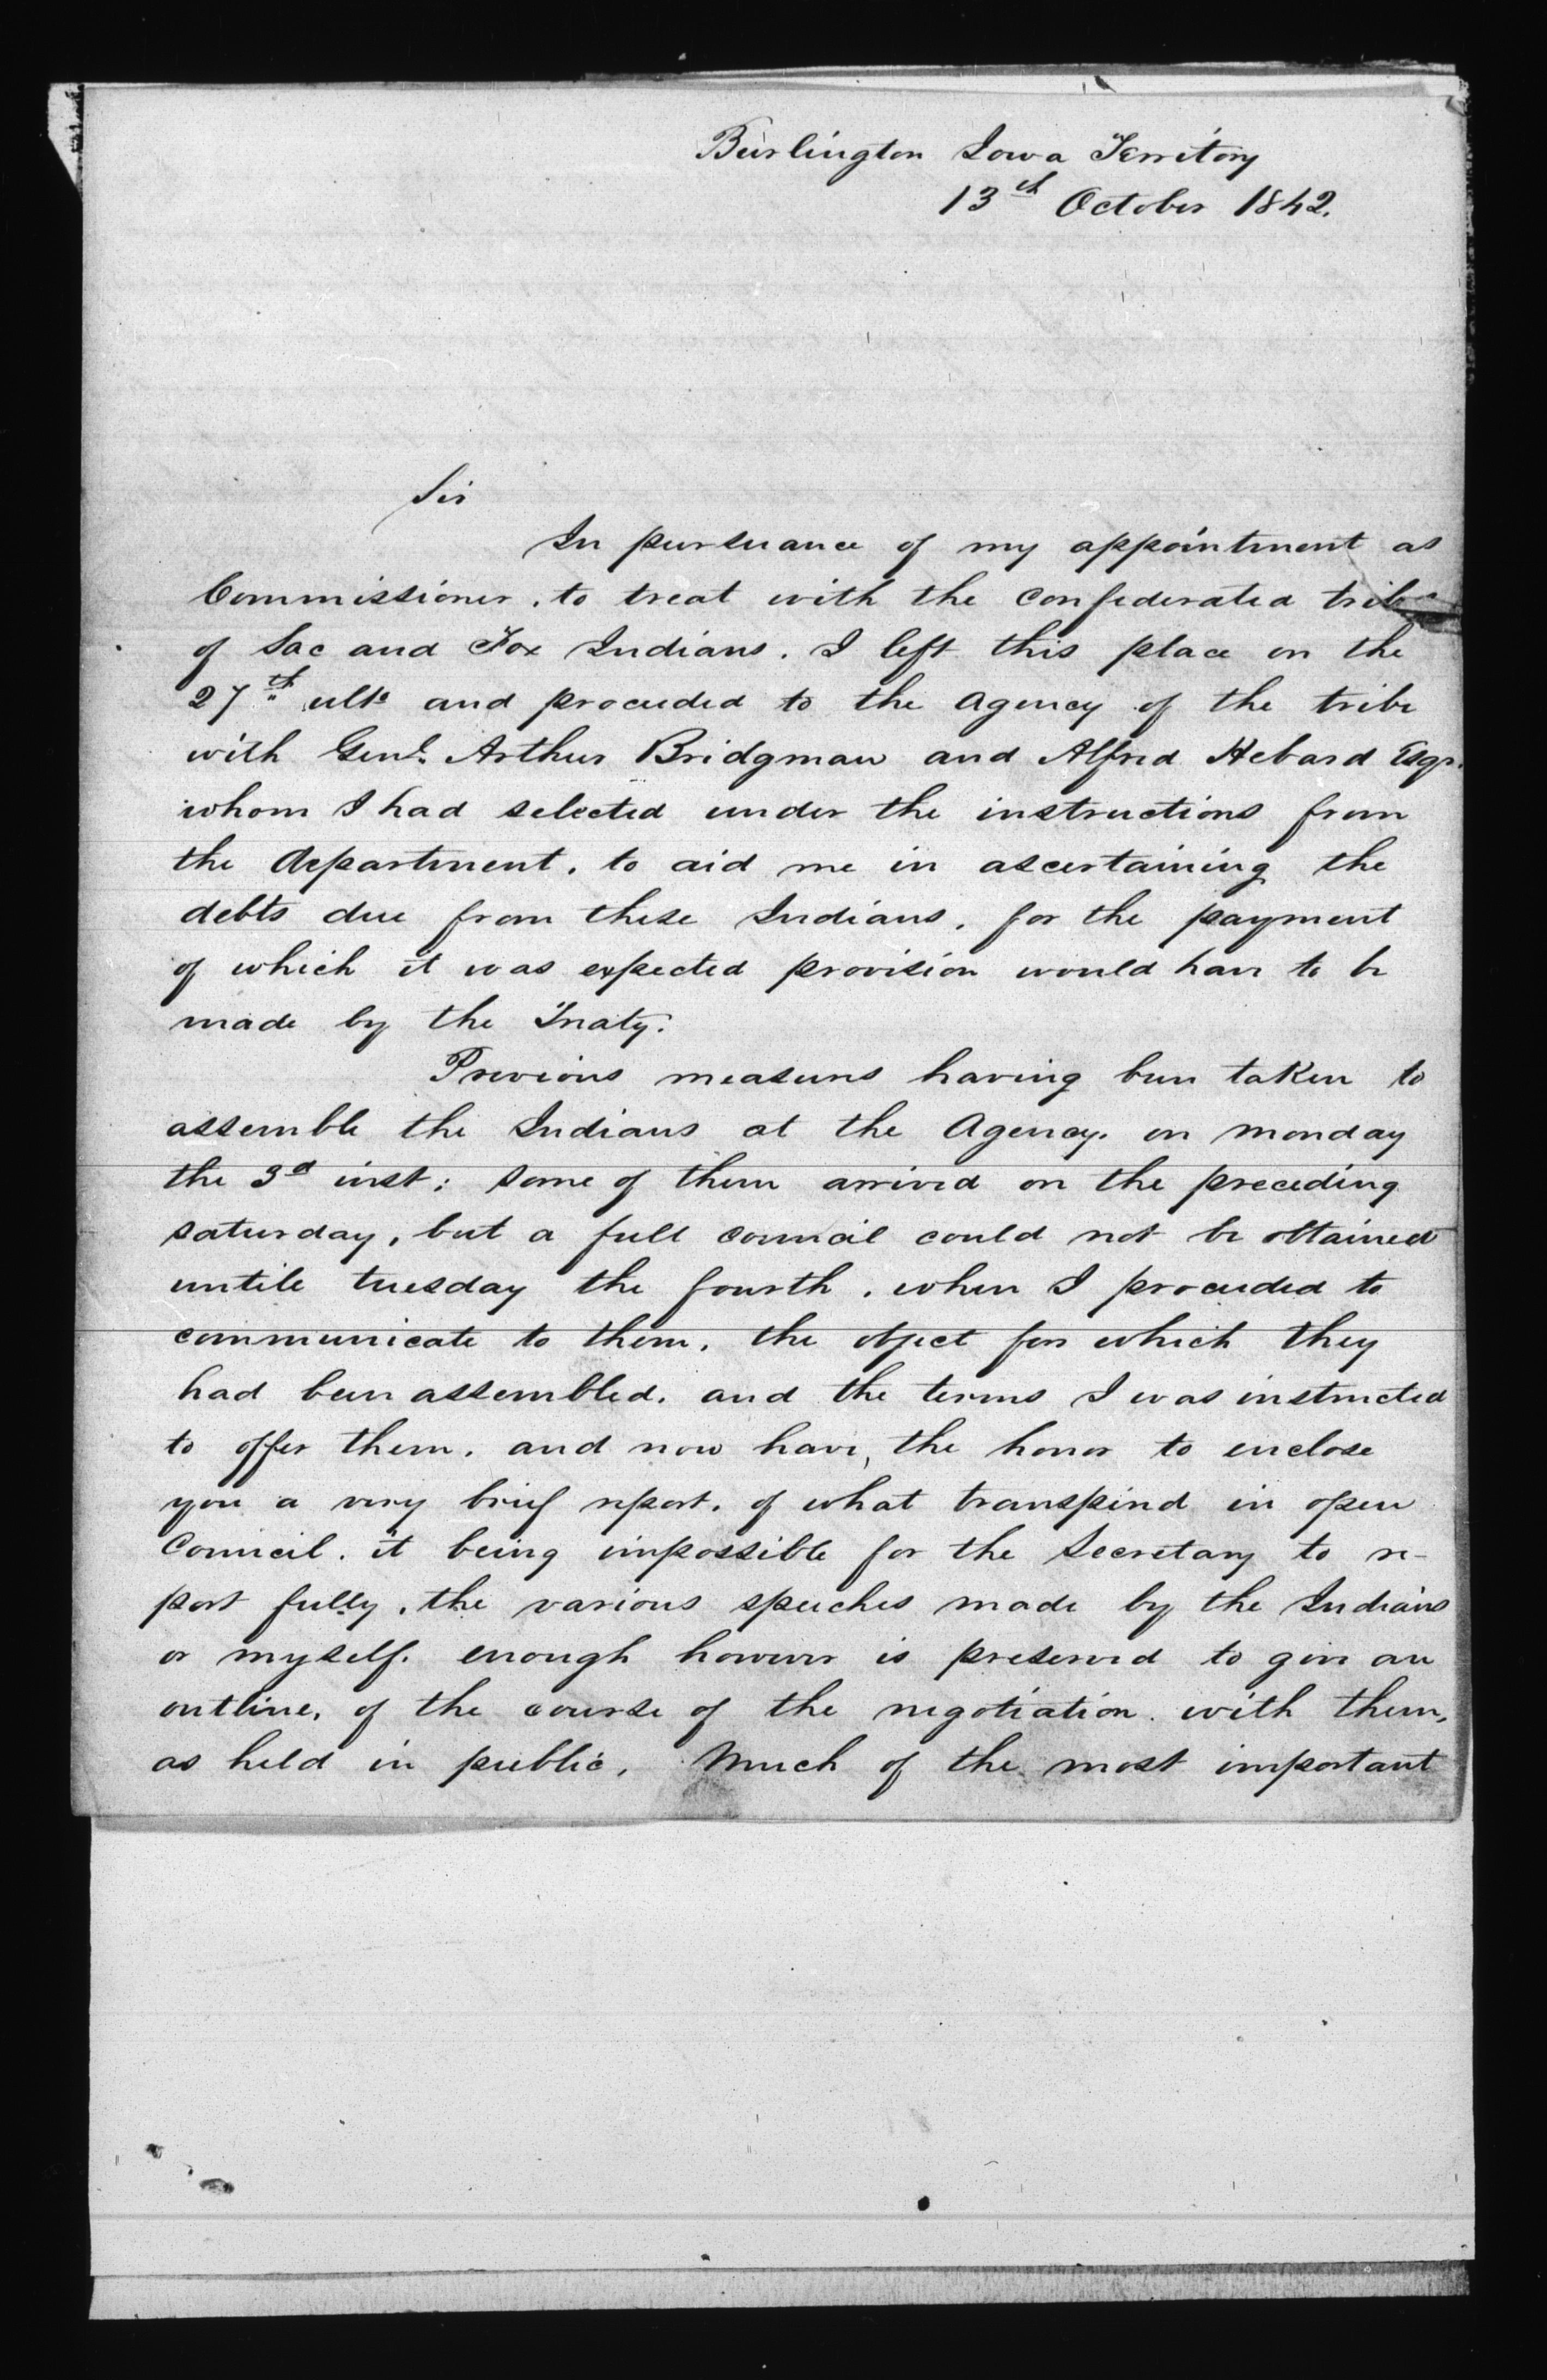 Burlington Iowa Territory
13th October 1842.
Sir
In pursuance of my appointment as
Commissioner, to treat with the confederated tribe
of Sac and Fox Indians. I left this place on the
27th ulto and proceeded to the Agency of the tribe
with Genl. Arthur Bridgman and Alfred Hebard Esqr.
whom I had selected under the instructions from
the department, to aid me in ascertaining the
debts due from these Indians, for the payment
of which it was expected provision would have to be
made by the Treaty.
Previous measures having been taken to
assemble the Indians at the Agency. on monday
the 3d inst; some of them arrived on the preceding
saturday, but a full council could not be obtained
untile tuesday the fourth. when I proceeded to
communicate to them, the object for which they
had been assembled, and the terms I was instructed
to offer them, and now have, the honor to enclose
you a very brief report, of what transpired in open
Council. it being impossible for the Secretary to re-
port fully, the various speeches made by the Indians
or myself. enough however is preserved to give an
outline, of the course of the negotiation with them,
as held in public. Much of the most important